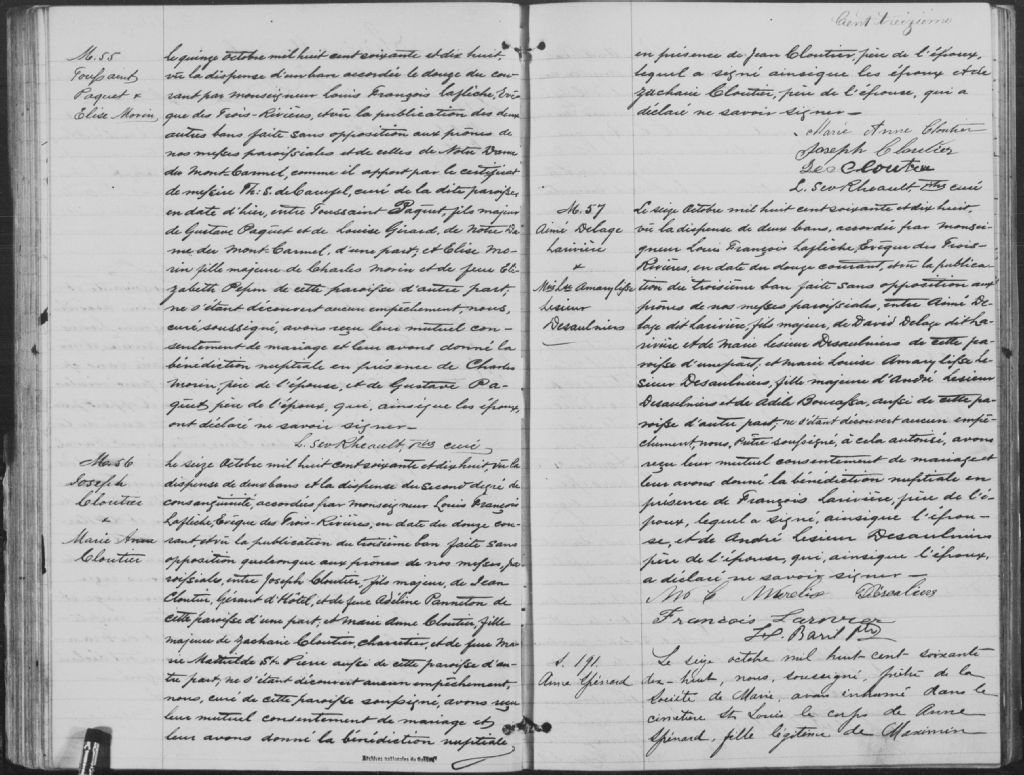 M. 55
Toussaint
Paquet &
Elise Morin
le quinze octobre mil huit cent soixante et dix huit,
vû la dispense d'un ban accordée le douze du cou-
rant par monseigneur Louis François Laflèche, Evê-
que des Trois-Rivières, et vû la publication des deux
autres bans faite sans opposition aux prônes de
nos messes paroissiales et de celles de Notre Dame
du Mont Carmel, comme il appert par le certificat
de messire Th: S. de Carufel, curé de la dite paroisse
en date d'hier, entre Toussaint Paquet, fils majeur
de Gustave Paquet et de Louise Girard, de Notre Da-
me du Mont-Carmel, d'une part; et Elise Mo-
rin fille majeure de Charles Morin et de feue Eli-
zabeth Pepin de cette paroisse d'autre part;
ne s'étant découvert aucun empêchement, nous,
curé soussigné, avons reçu leur mutuel con-
sentement de mariage et leur avons donné la
bénédiction nuptiale en présence de Charles
Morin, père de l'épouse, et de Gustave Pa-
quet père de l'époux, qui, ainsique les époux,
ont déclaré ne savoir signer—
L. Sev Rheault, Ptre curé
M. 56
Joseph
Cloutier
&
Marie Anne
Cloutier
Le seize Octobre mil huit cent soixante et dix huit, vû la
dispense de deux bans et la dispense du second degré de
consanguinité, accordées par monseigneur Louis François
Laflèche, Evêque des Trois-Rivières, en date du douze cou-
rant, et vû la publication du troisième ban faite sans
opposition quelconque aux prônes de nos messes, pa-
roissiales, entre Joseph Cloutier, fils majeur, de Jean
Cloutier, Gérant d'Hôtel, et de feue Adéline Panneton de
cette paroisse d'une part; et Marie Anne Cloutier, fille
majeure de Zacharie Cloutier, charretier, et de feue Ma-
rie Mathilde St. Pierre aussi de cette paroisse d'au-
tre part, ne s'étant découvert aucun empêchement,
nous, curé de cette paroisse soussigné, avons reçu
leur mutuel consentement de mariage et
leur avons donné la bénédiction nuptiale
Archives nationales du Québec
Cent treizième
en présence de Jean Cloutier, père de l'époux,
lequel a signé ainsique les époux et de
Zacharie Cloutier, père de l'épouse, qui a
déclaré ne savoir signer—
Marie Anne Cloutier
Joseph Cloutier
Cloutier
L. Sev Rheault Ptre curé
M. 57
Aimé Delage
Larivière
&
Mie Lse Amarylisse
Lesieur
Desaulniers
Le seize Octobre mil huit cent soixante et dix huit,
vû la dispense de deux bans, accordée par monsei-
gneur Louis François Laflèche, Evêque des Trois-
Rivières, en date du douze courant, et vû la publica-
tion du troisième ban faite sans opposition aux
prônes de nos messes paroissiales, entre Aimé De-
lage dit Larivière, fils majeur, de David Delage dit La-
rivière et de Marie Lesieur Desaulniers de cette pa-
roisse d'une part; et Marie Louise Amarylisse Le-
sieur Desaulniers, fille majeure d'André Lesieur
Desaulniers et de Adèle Bourassa, aussi de cette pa-
roisse d'autre part, ne s'étant découvert aucun empê-
chement, nous, Prêtre soussigné, à cela autorisé, avons
reçu leur mutuel consentement de mariage et
leur avons donné la bénédiction nuptiale en
présence de François Larivière, père de l'é-
poux, lequel a signé, ainsique l'épou-
se, et de André Lesieur Desaulniers
père de l'épouse, qui, ainsique l'époux,
a déclaré ne savoir signer—
François Larivier
Baril Ptre
S. 191.
Anne Spénard
Le seize octobre mil huit cent soixante
dix-huit, nous, soussigné, prêtre de la
Société de Marie, avons inhumé dans le
cimetière St. Louis le corps de Anne
Spénard, fille légitime de Maximin